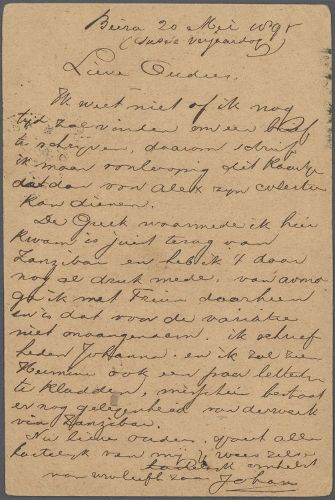 Beira 20 Mei 1898
(Susie verjaardag)
Lieve Ouders,
Ik weet niet of ik nog
tijd zal vinden om een brief
te schrijven, daarom schrijf
ik maar voorloopig dit kaartje
dat dan voor Alex zijn collectie
kan dienen.
De Greek waarmede ik hier
kwam is juist terug van
Zanzibar en heb ik 't daar
nog al druk mede, van avond
ga ik met Frein daarheen
en is dat voor de variatie
niet onaangenaam. ik schreef
heden Johanna en ik zal zien
Hermine ook een paar letters
te kladden, misschien bestaat
er nog gelegenheid van
via Zanzibar.
Nu lieve ouders, groet allen
hartelijk van mij, wees zelve
omhelst
van uw liefh. zoon Johan